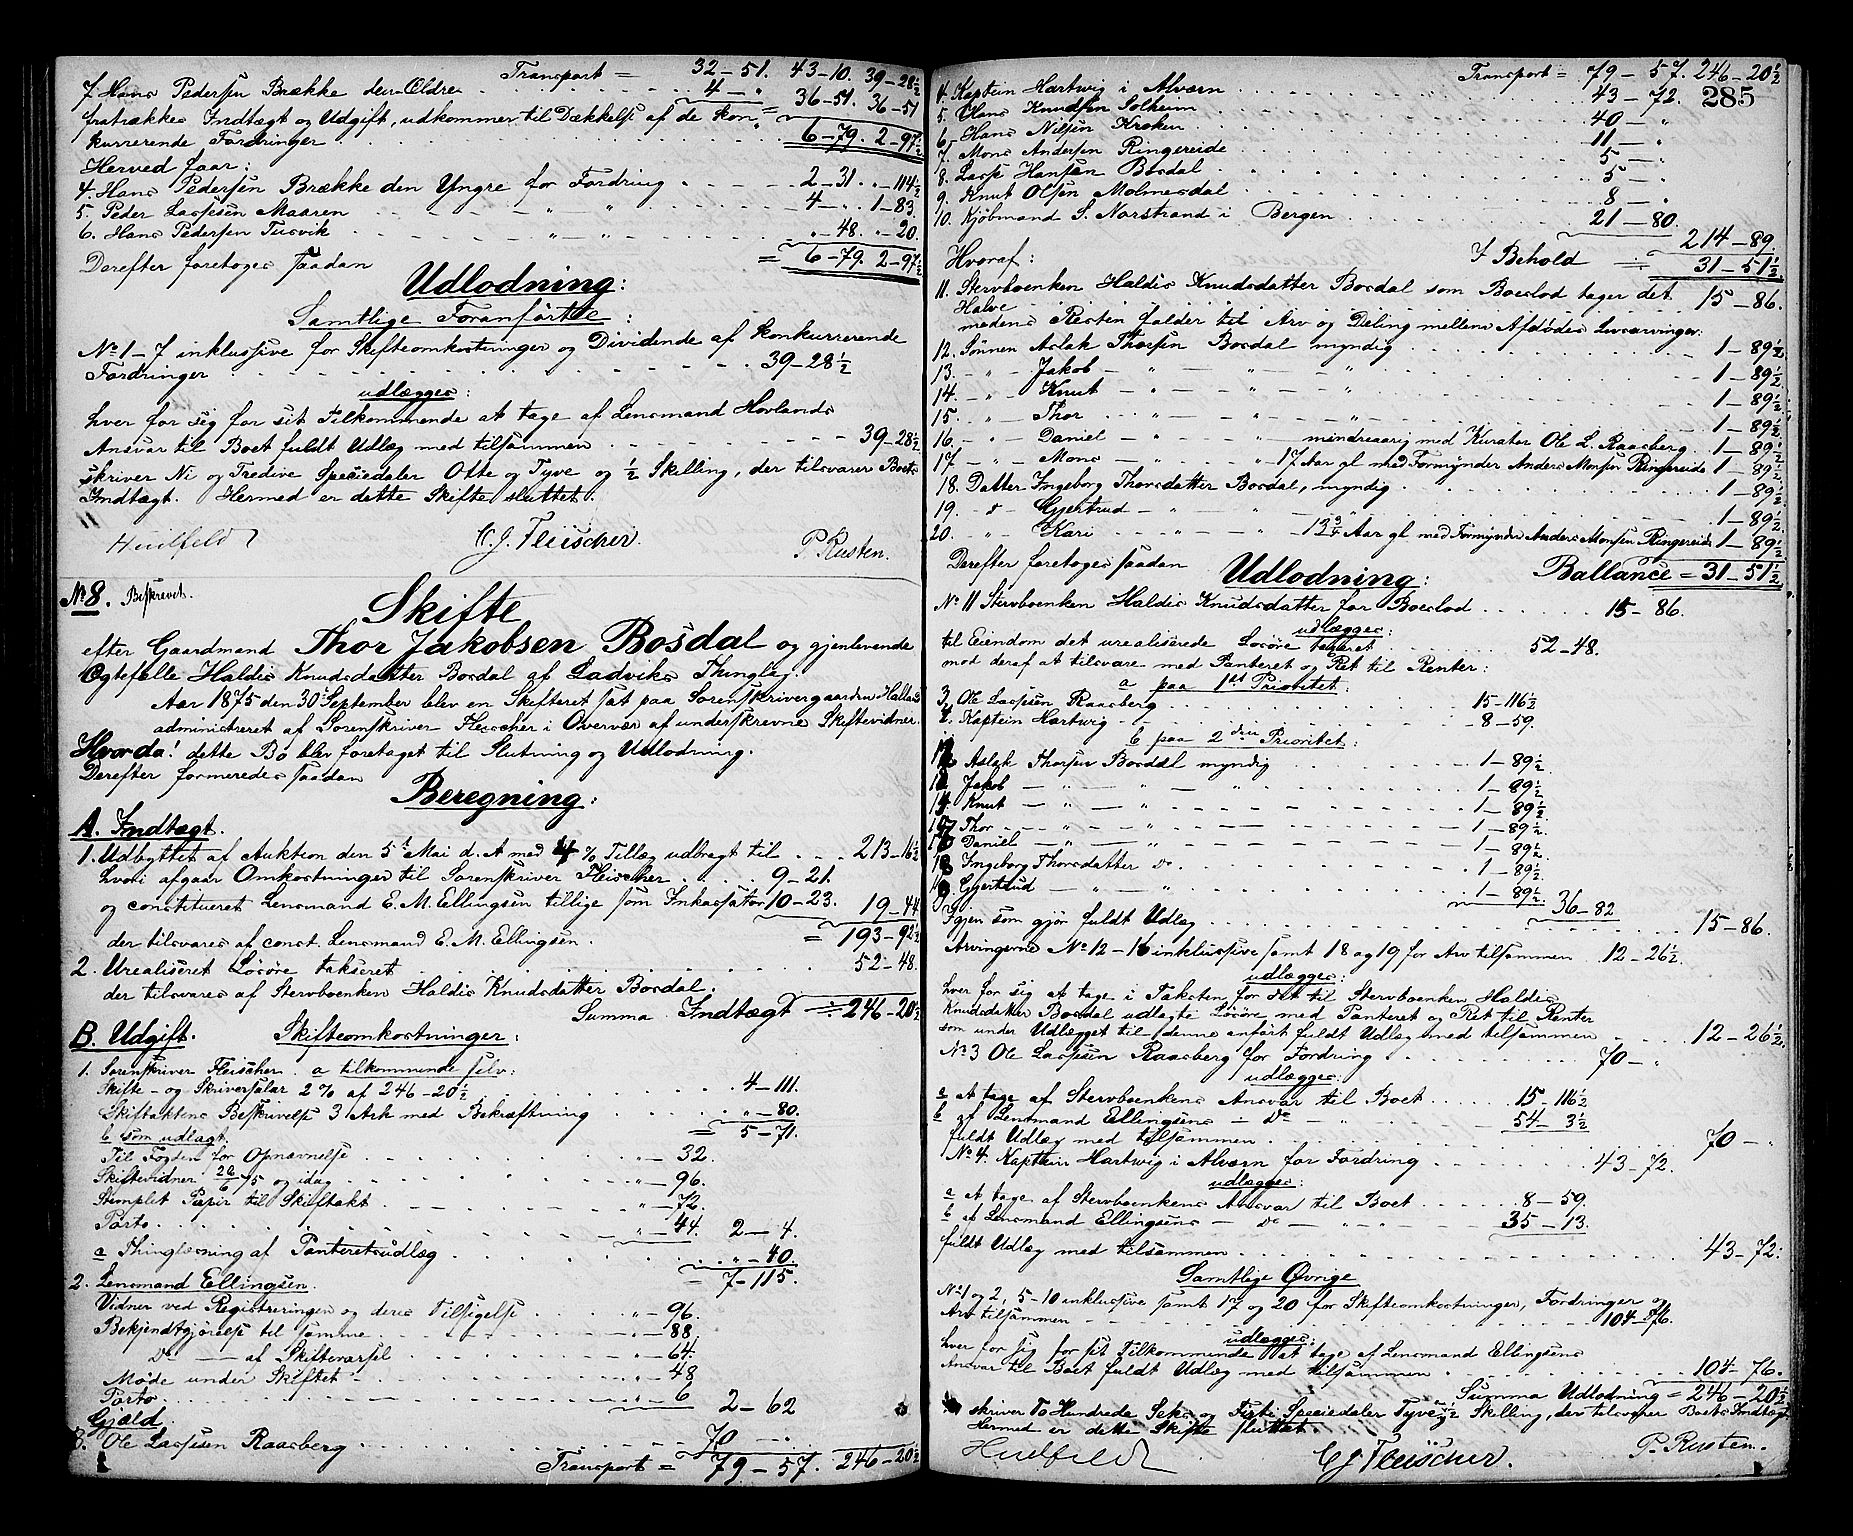 Transport = 32-51. 43-10. 39-28½
7. Hans Pedersen Brække den Ældre 4-"
36-51. 36-51
fratrækkes Indtægt og Udgift, udkommer til Dækkelse af de kon-
kurrerende Fordringer 6-79. 2-97½
Herved faar:
4. Hans Pedersen Brække den Yngre for Fordring 2-31. "-114½
5. Peder Lassesen Maaren " " 4-". 1-83.
6. Hans Pedersen Tusvik " " "-48. "-20.
Derefter foretoges saadan = 6-79. 2-97½
Udlodning:
Samtlige Foranførte:
No 1-7 inklusive for Skifteomkostninger og Dividende af konkurrerende
Fordringer 39-28½
udlægges:
hver for sig for sit Tilkommende at tage af Lensmand Hovlands
Ansvar til Boet fuldt Udlæg med tilsammen 39-28½
skriver Ni og Tredive Spesiedaler Otte og Tyve og ½ Skilling, der tilsvarer Boets
Indtægt. Hermed er dette Skifte sluttet.
Huilfeldt C. J. Fleischer. P. Rusten.
No 8. Beskrevet.
Skifte
efter Gaardmand Thor Jakobsen Bosdal og gjenlevende
Ægtefelle Haldis Knudsdatter Bosdal af Ladviks Thinglag.
Aar 1875 den 30 September blev en Skifteret sat paa Sorenskrivergaarden
administreret af Sorenskriver Fleischer i Overvær af underskrevne Skiftevidner.
Hvorda! dette Bo blev foretaget til Slutning og Udlodning.
Derefter formeredes saadan
Beregning:
A. Indtægt.
1. Udbyttet af Auktion den 5te Mai d. A. med 4 % Tillæg udbragt til 213-16½
hvori afgaar Omkostninger til Sorenskriver Fleischer 9-21.
og constitueret Lensmand E. M. Ellingsen tillige som Inkassator 10-23. 19-44
der tilsvares af const. Lensmand E. M. Ellingsen. = 193-92½
2. Urealiseret Løsøre takseret 52-48.
der tilsvares af Stervboenken Haldis Knudsdatter Bosdal.
Summa Indtægt = 246-20½
B. Udgift. Skifteomkostninger:
1. Sorenskriver Fleischer. a tilkommende selv:
Skifte- og Skriversalær 2% af 246-20½ 4-111.
Skifteaktens Beskrivelse 3 Ark med Bekræftning "-80.
b som udlagt. = 5-71.
Til Fogden for Opnævnelse "-32.
Skiftevidner og idag "-96.
Stemplet Papir til Skifteakt "-72.
Porto "-44. 2-4.
a Thinglæsning af Panteretsudlæg "-40
= 7-115.
2. Lensmand Ellingsen.
Vidner ved Registreringen og deres Tilsigelse "-96.
Bekjendtgjørelse til samme "-88.
Do af Skiftevarsel "-64.
Møde under Skiftet "-48
Porto "-6 2-62
Gjæld.
3. Ole Lassesen Raasberg 70-".
Transport = 79-57. 246-20½
Transport = 79-57. 246-20½
285
4. Kaptein Hartwig i Alværn 43-72.
5. Hans Knudsen Solheim 40-"
6. Hans Nilsen Kroken 11-"
7. Mons Andersen Ringereide 5-"
8. Lasse Hansen Bosdal 5-"
9. Knut Olsen Molmesdal 8-"
10. Kjøbmand S. Norstrand i Bergen 21-80.
214-89.
Hvoraf: I Behold 31-51½
11. Stervboenken Haldis Knudsdatter Bosdal som Boeslod tager det
Halve 15-86.
medens Resten falder til Arv og Deling mellem Afdødes Livsarvinger:
12. Sønnen Aslak Thorsen Bosdal myndig 1-89½
13. " Jakob " " " 1-89½
14. " Knut " " " 1-89½
15. " Thor " " " 1-89½
16. " Daniel " " mindreaarig med Kurator Ole L. Raasberg 1-89½
17 " Mons " " 17 Aar gl med Formynder Anders Monsen Ringereide 1-89½
18. Datter Ingeborg Thorsdatter Bosdal, myndig 1-89½
19. " Gjertrud " " 1-89½
20. " Kari " " 13¾ Aar gl med Formynder Anders Monsen Ringereide 1-89½
Derefter foretoges saadan Udlodning: Ballance = 31-51½
No 11 Stervboenken Haldis Knudsdatter for Boeslod 15-86.
udlægges:
til Eiendom det urealiserede Løsøre takseret 52-48.
mod deraf at tilsvare med Panteret og Ret til Renter:
a paa 1ste Prioritet:
3. Ole Lassesen Raasberg 15-116½
4. Kaptein Hartwig 8-59.
b paa 2den Prioritet:
12 Aslak Thorsen Bosdal myndig 1-89½
13 Jakob " " " 1-89½
14 Knut " " 1-89½
Thor " " 1-89½.
Daniel " " 1-89½
18 Ingeborg Thorsdatter Do. 1-89½
19. Gjertrud " " 1-89½ 36-82
Igjen som gjør fuldt Udlæg 15-86.
Arvingerne No 12-16 inklusive samt 18 og 19 for Arv tilsammen 12-26½
udlægges:
hver for sig at tage i Taksten for det til Stervboenken Haldis
Knudsdatter Bosdal udlagte Løsøre med Panteret og Ret til Renter
som under Udlægget til denne anført fuldt Udlæg med tilsammen 12-26½
No 3 Ole Lassesen Raasberg for Fordring 70-"
udlægges:
a at tage af Stervboenkens Ansvar til Boet 15-116½
b af Lensmand Ellingsens Do " 54-3½
fuldt Udlæg med tilsammen 70-".
No 4. Kaptein Hartwig i Alværn for Fordring 43-72.
udlægges:
a at tage af Stervboenkens Ansvar til Boet 8-59.
b af Lensmand Ellingsens Do " 35-13.
fuldt Udlæg med tilsammen 43-72.
Samtlige Øvrige
No 1 og 2, 5-10 inklusive samt 17 og 20 for Skifteomkostninger, Fordringer og
Arv tilsammen 104-76.
udlægges:
hver for sig for sit Tilkommende at tage af Lensmand Ellingsens
Ansvar til Boet fuldt Udlæg med tilsammen 104-76.
Summa Udlodning = 246-20½
skriver To Hundrede Seks og Firti Spesiedaler Tyve ½ Skilling, der tilsvarer Boets Indtægt
Hermed er dette Skifte sluttet.
Huilfeldt C J Fleischer. P. Rusten.